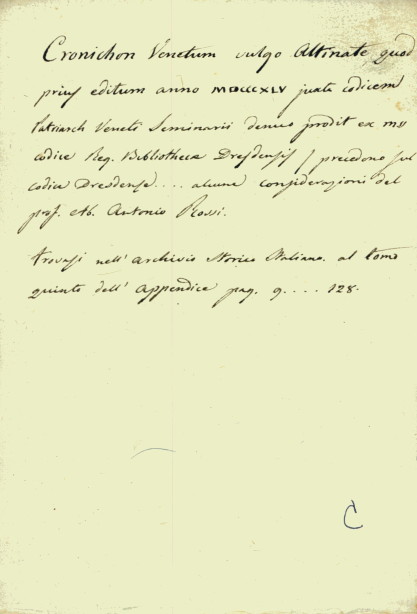 Cronichon Venetum vulgo Altinate, quod
prius editum anno MDCCCXLV juxta codicem
Patriarch Veneti Seminarii denuo prodit ex mss
codice Reg. Bibliothecæ Dresdensis / precedono sul
codice Dresdense.... alcune considerazioni del
prof. Ab. Antonio Rossi.
trovasi nell' archivio Storico Italiano. al tomo
quinto dell' appendice pag. 9.... 128.
C